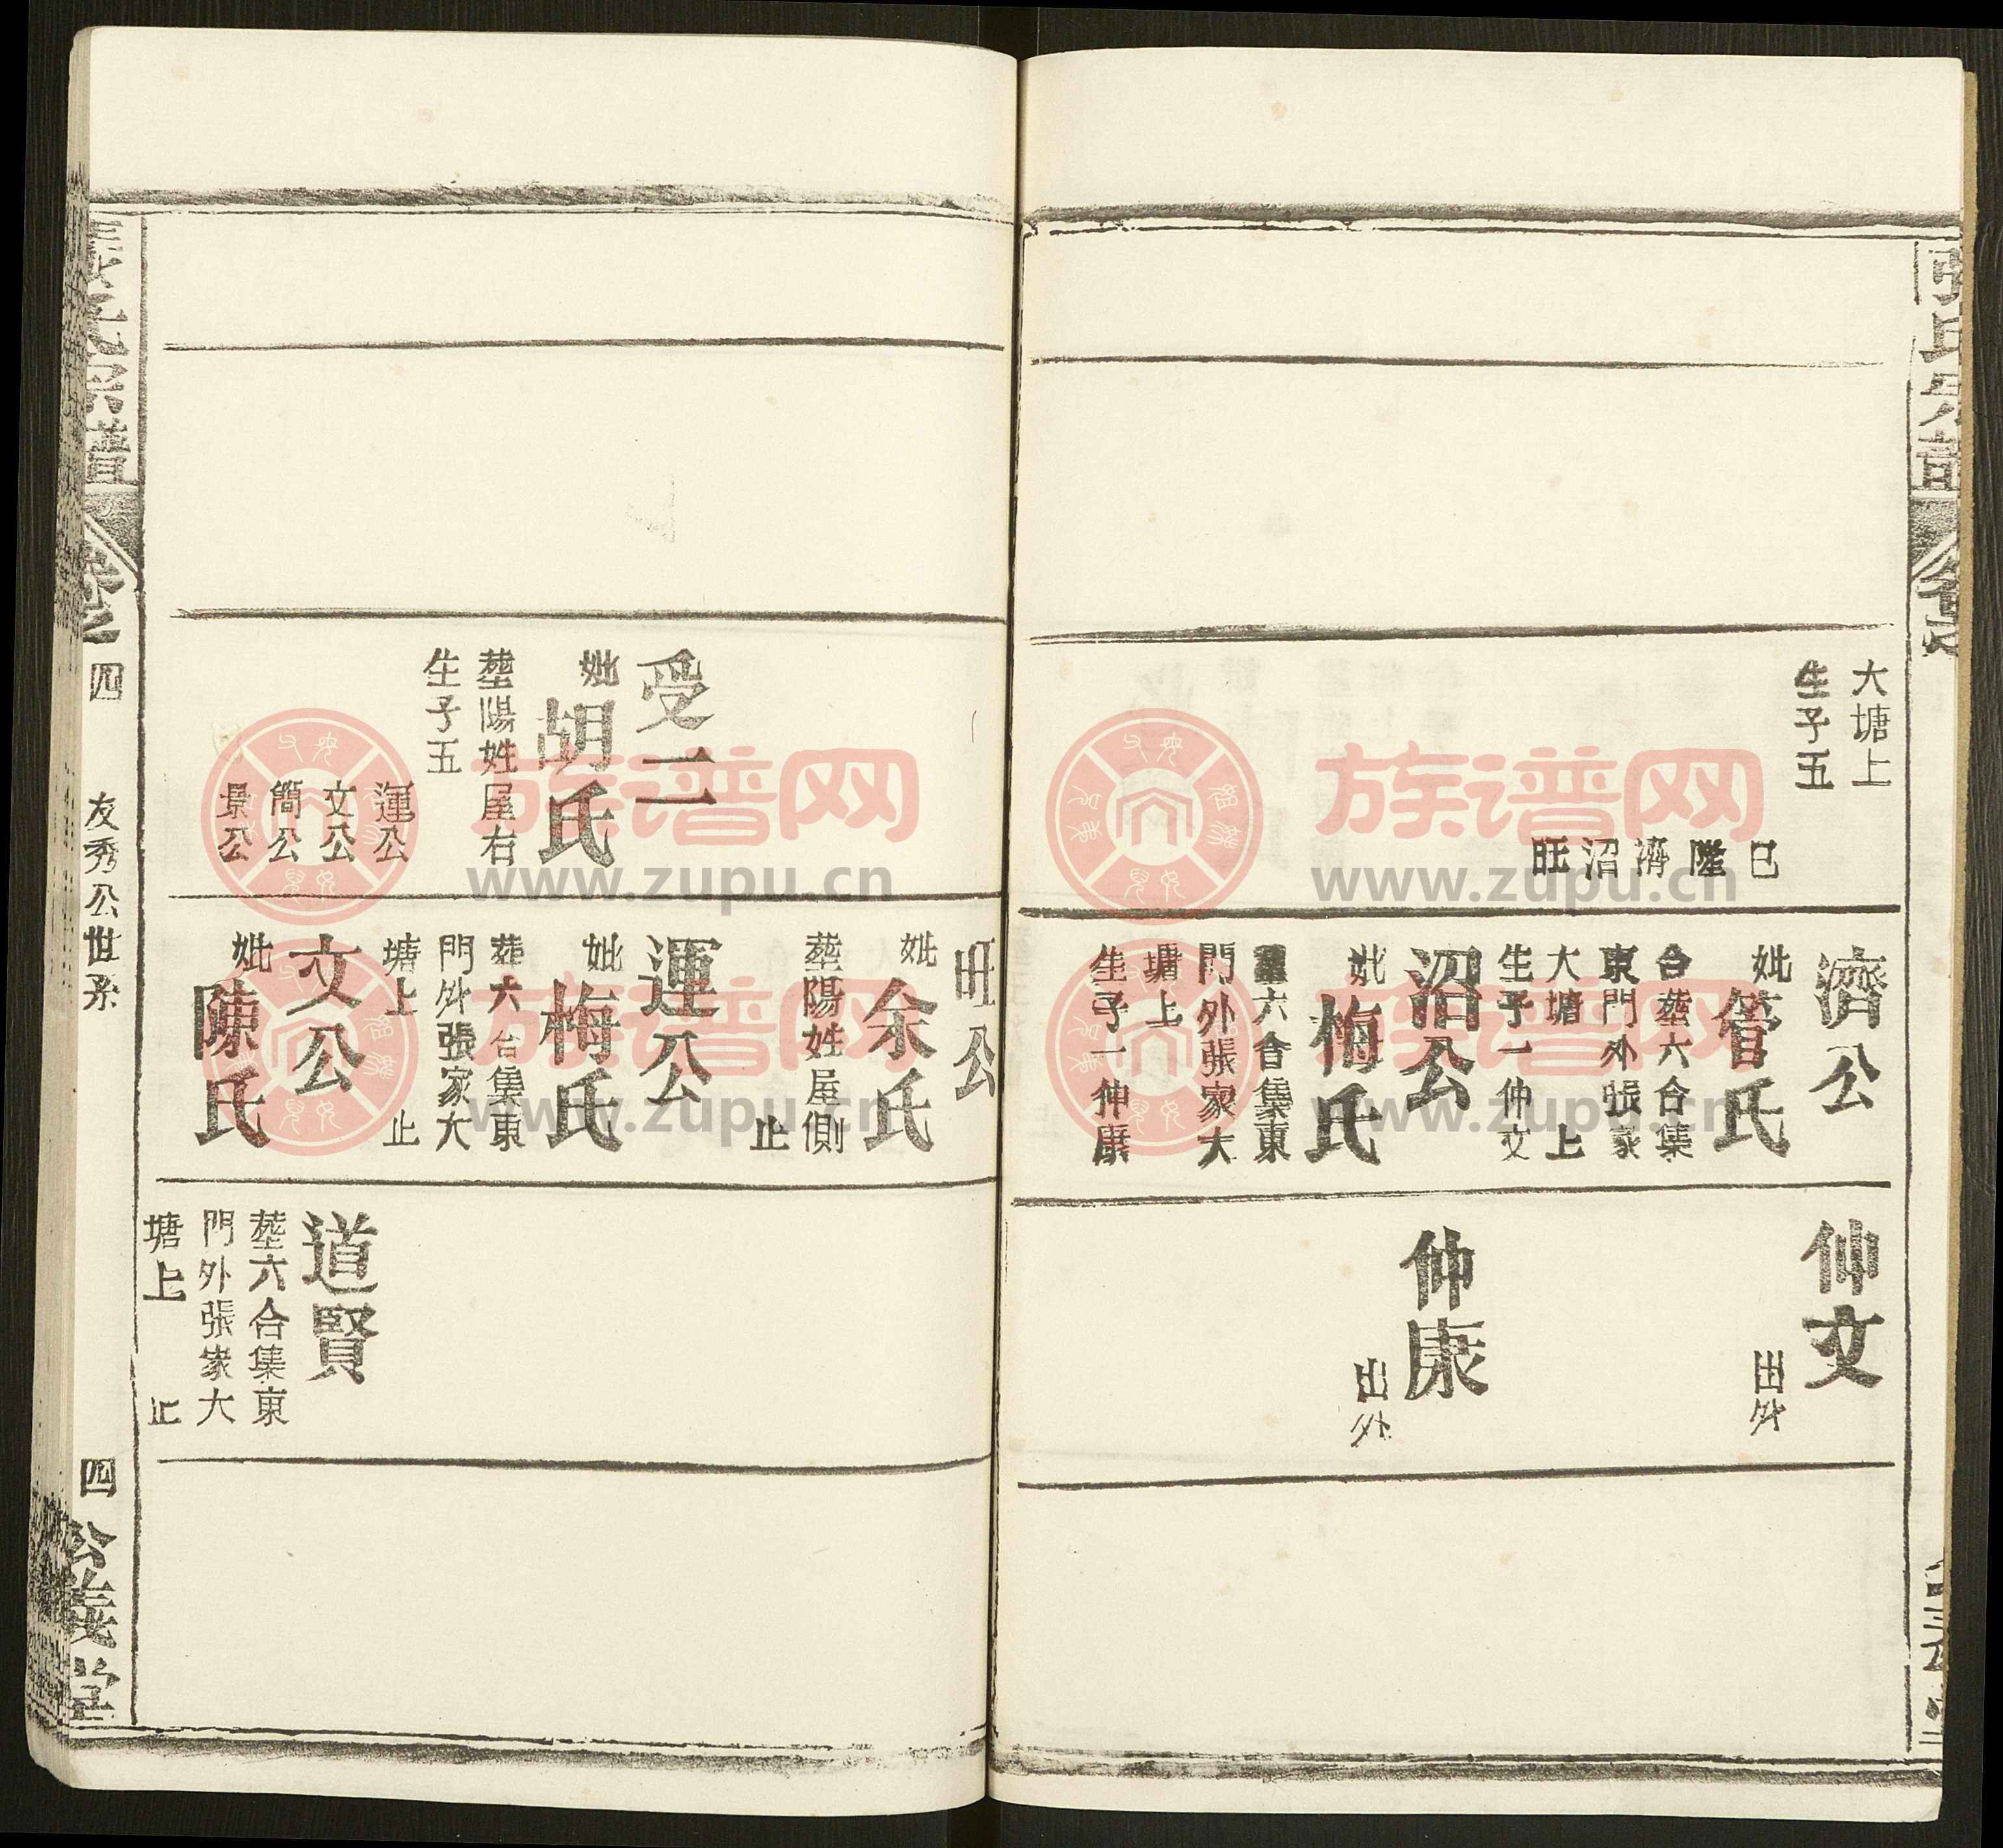 張氏宗譜
大塘上
生子五
巳
陞
濟
沼
旺
濟公
妣管氏
合塟六合集
東門外張家
大塘上
生子一仲文
沼公
妣梅氏
六合集東
門外張家大
塘上
生子一仲康
仲文
出外
仲康
出外
旺公
妣余氏
塟陽姓屋側
止
受二
妣胡氏
塟陽姓屋右
生子五
運公
文公
簡公
景公
運公
妣梅氏
葬六合集東
門外張家大
塘上 止
文公
妣陳氏
道賢
塟六合集東
門外張家大
塘上 止
張氏宗譜 卷之四 友秀公世系 四 公義堂
族谱网
www.zupu.cn
族谱网
www.zupu.cn
族谱网
www.zupu.cn
族谱网
www.zupu.cn